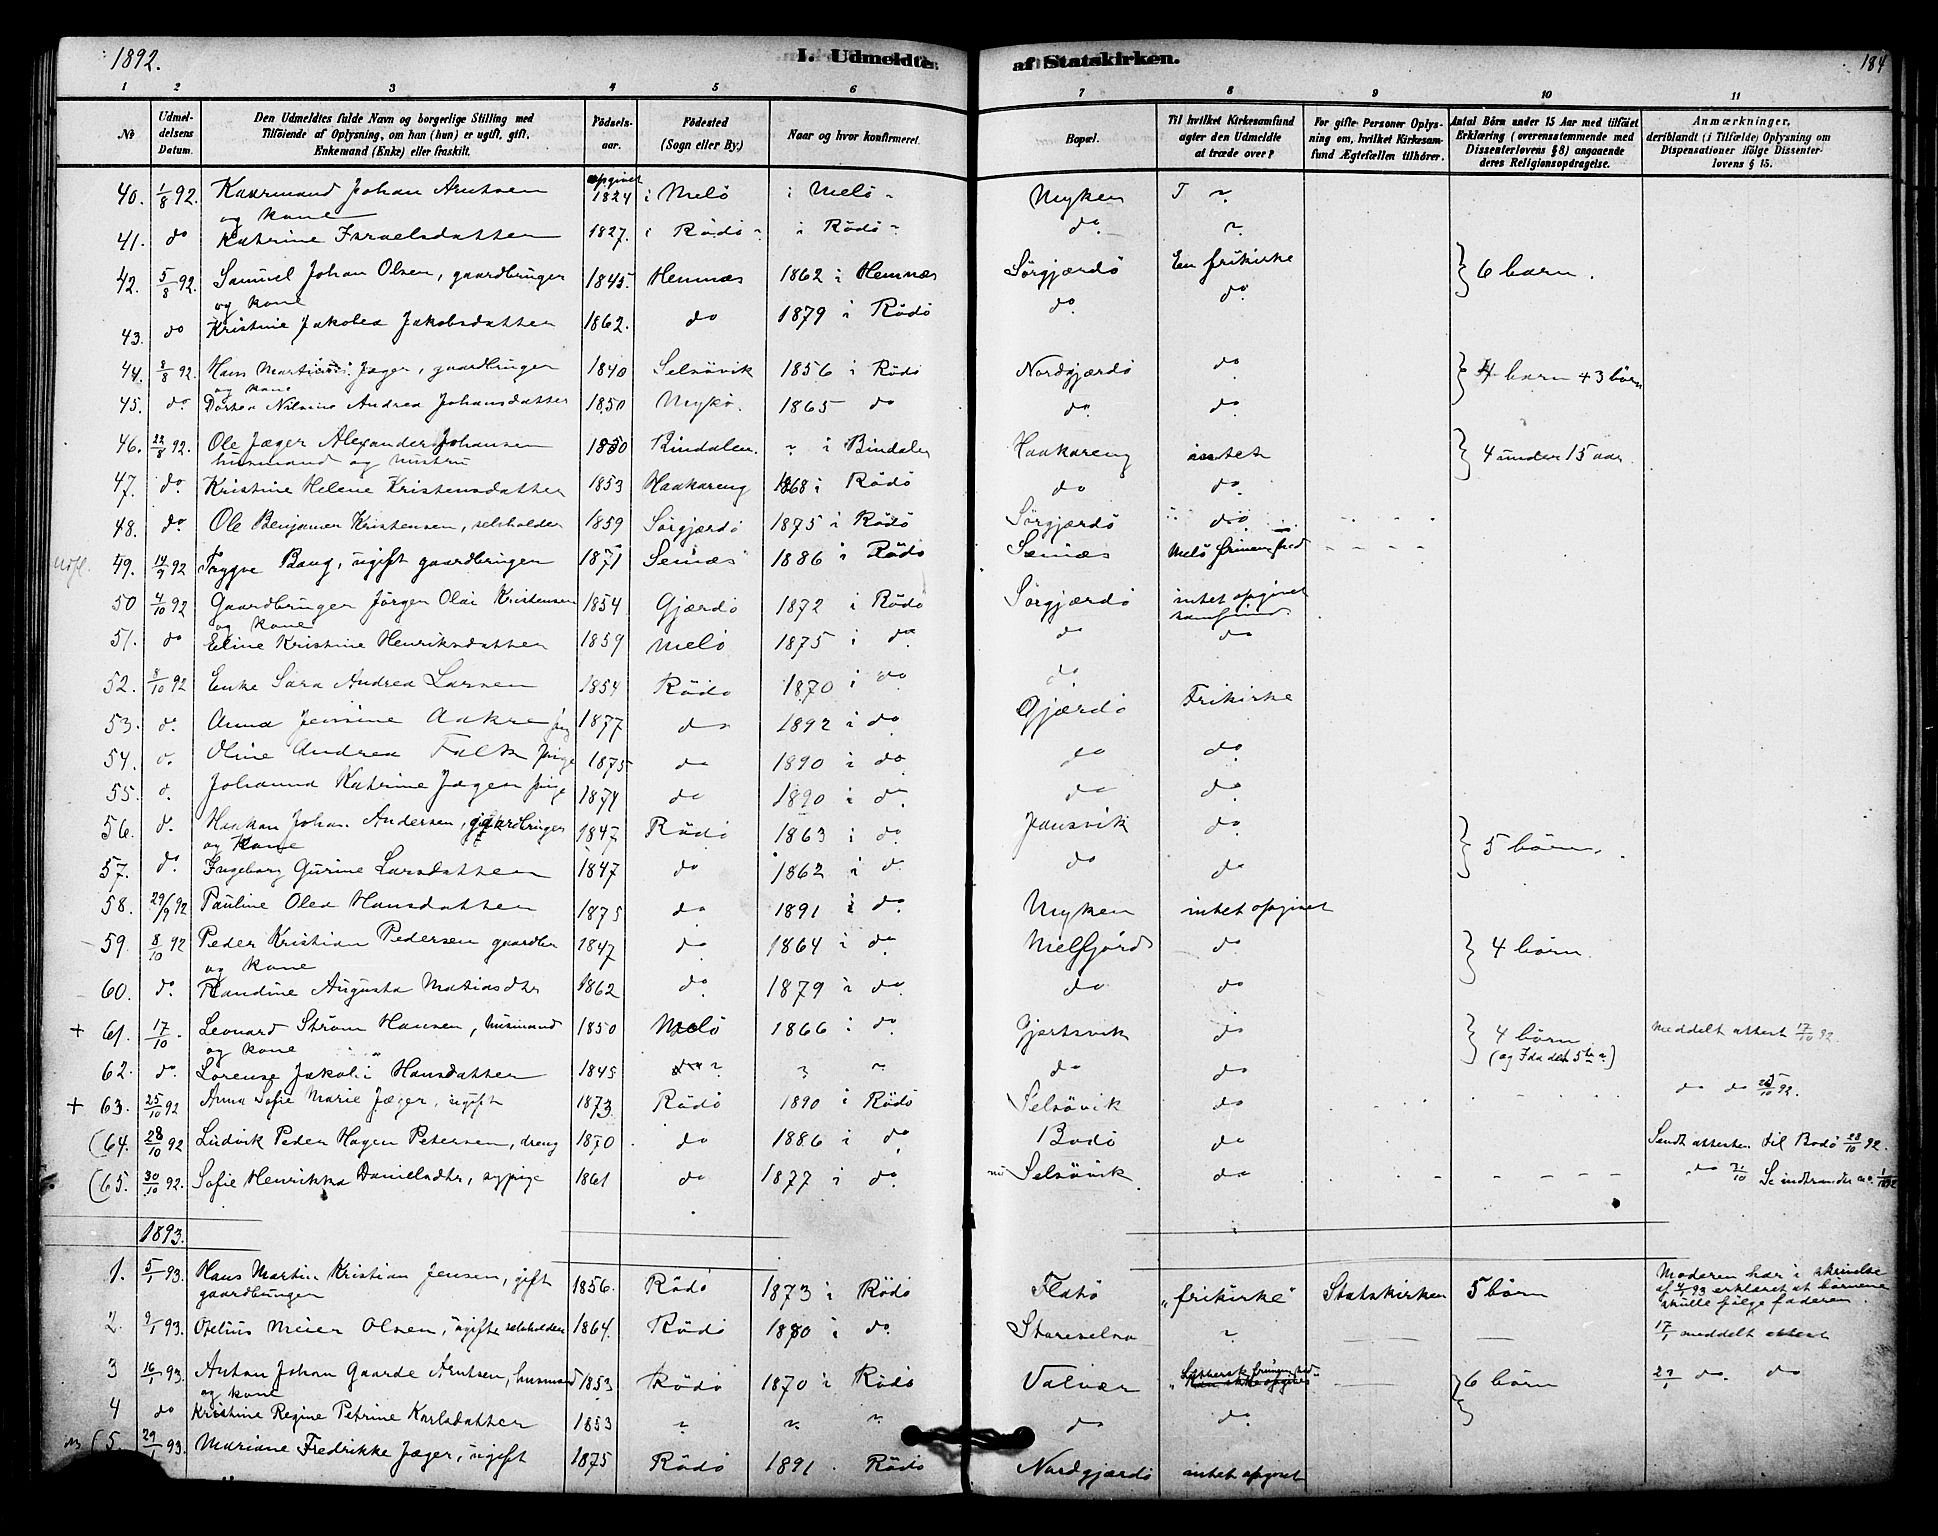 1892.
I. Udmeldte af Statskirken.
184
1 2 3 4 5 6 7 8 9 10 11
No
Udmeldelsens Datum.
Den Udmeldtes fulde Navn og borgerlige Stilling med
Tilføiende af Oplysning, om han (hun) er ugift, gift,
Enkemand (Enke) eller fraskilt.
Fødselsaar.
Fødested
(Sogn eller By.)
Naar og hvor konfirmeret.
Bopæl.
Til hvilket Kirkesamfund
agter den Udmeldte
at træde over?
For gifte Personer Oplysning om, hvilket Kirkesamfund Ægtefællen tilhører.
Antal Børn under 15 Aar med tilføiet
Erklæring (overensstemmende med
Dissenterlovens § 8) angaaende
deres Religionsopdragelse.
Anmærkninger,
deriblandt (i Tilfælde) Oplysning om
Dispensationer ifølge Dissenterlovens § 15.
40. 1/8 92. Kaarmand Johan Arntsen opgivet 1824 i Melö i Melö Myken
og kone
41. do Katrine Israelsdatter 1827. i Rödö i Rödö do
42. 5/8 92. Samuel Johan Olsen, gaardbruger 1845. Hemnæs 1862 i Hemnæs Sörgjærdö En frikirke 6 barn.
og kone
43. do Kristine Jakobea Jakobsdatter 1862. do 1879 i Rödö do do
44. 8/8 92. Hans Martinus Jæger, gaardbruger 1840 Selsövik 1856 i Rödö Nordgjærdö do 4 barn + 3 börn
og kone
45. do Dortea Nilsine Andrea Johansdatter 1850 Mykö. 1865 do do do
46. 22/8 92. Ole Jæger Alexander Johansen 1850 Bindalen. i Bindalen Haakareng intet 4 under 15 aar
husmand og hustru
47. do. Kristine Helene Kristensdatter 1853 Haakareng 1868 i Rödö do do
48. do Ole Benjamin Kristensen, selvholder 1859 Sörgjærdö 1875 i Rödö Sörgjærdö do
49. 14/9 92 Trygve Baug, ugift gaardbruger 1871 Sennæs 1886 i Rödö Sennæs Melö frimenighed
50 4/10 92 Gaardbruger Jörgen Olai Kristensen 1854 Gjærdö 1872 i Rödö Sörgjærdö intet opgivet samfund
og kone
51. do Eline Kristine Henriksdatter 1859 Melö 1875 i do do do
52. 8/10 92 Enke Sara Andrea Larsen 1854 Rödö 1870 i do do
53. do. Anna Jensine Aakre pig 1877 do 1892 i do Gjærdö Frikirke
54. do. Oline Andrea Falk pige 1875 do 1890 i do do do
55. d. Johanna Katrine Jæger pige 1874 do 1890 i do do do
56. d. Haakan Johan Andersen, gaardbruger 1847 Rödö 1863 i do Jansvik do 5 börn.
og Kone
57. do Ingeborg Gurine Larsdatter 1847 do 1862 i do do do
58. 29/9 92 Pauline Olea Hansdatter 1875 do 1891 i do Myken intet opgivet
59. 8/10 92 Peder Kristian Pedersen gaardbr 1847 do 1864 i do Melfjord do 4 börn
og kone
60. do. Randine Augusta Matiasdtr 1862 do 1879 i do do do
+ 61. 17/10 Leonard Ström Hansen, husmand 1850 Melö 1866 i do Gjørtsvik do 4 börn Meddelt attest 17/10 92.
og kone (og Ida det 5te a)
62. do. Lorense Jakobi Hansdatter 1845 do do do
+ 63. 25/10 92 Anna Sofie Marie Jæger, ugift 1873. Rödö 1890 i Rödö Selsövik do do do 25/10 92.
(64. 28/10 92 Ludvik Peder Hagen Petersen, dreng 1870 do 1886 i do Bodö do Sendt attesten til Bodö 28/10 92.
(65. 30/10 92. Sofie Henrikka Danielsdtr, sypige 1861 do 1877 i do nu Selsövik do do
1893.
1. 5/1 93. Hans Martin Kristian Jensen, gift 1856. Rödö 1873 i Rödö Flatö "frikirke" Statskirken 5 börn Moderen har i skrivelse
gaardbruger af 4/1 93 erklæret at börnene
skulle fölge faderen.
2. 9/1 93. Otelius Meier Olsen, ugift selvholder 1864. Rödö 1880 i do. Storeselsö 17/1 meddelt attest
3 16/1 93. Anton Johan Gaarde Arntsen, husmand 1853 Rödö 1870 i Rödö Valvær 6 börn do. do
og kone
4 do Kristine Regine Petrine Karlsdatter 1853 do do
(5. 29/1 93. Mariane Fredrikke Jæger, ugift 1875 Rödö 1891. Rödö Nordgjærdö intet opgivet